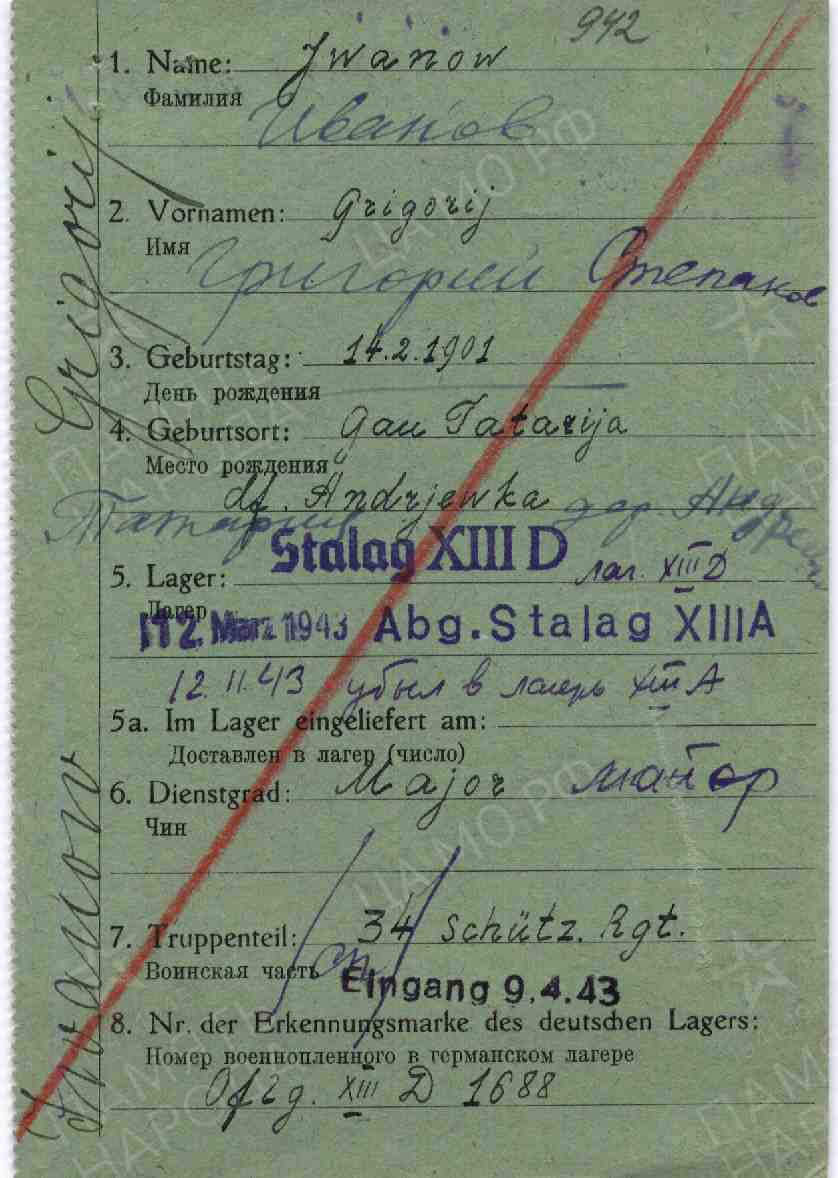 942
1. Name: Jwanow
Фамилия
Иванов
2. Vornamen: Grigorij
Имя
Григорий Степанов
3. Geburtstag: 14.2.1901
День рождения
4. Geburtsort: Gau Tatarija
Место рождения
df. Andrjewka дер. Андреев
Татария
Stalag XIII D
5. Lager: лаг. XIII D
Лагер
12. März 1943 Abg. Stalag XIIIA
12.11.43 убыл в лагерь XIII A
5a. Im Lager eingeliefert am:
Доставлен в лагер (число)
6. Dienstgrad: Major майор
Чин
7. Truppenteil: 34 Schütz. Rgt.
Воинская часть сп
Eingang 9.4.43
8. Nr. der Erkennungsmarke des deutschen Lagers:
Номер военнопленного в германском лагере
Oflg. XIII D 1688
Jwanow Grigorij
ЦАМО.РФ
ПАМЯТЬ НАРОДА